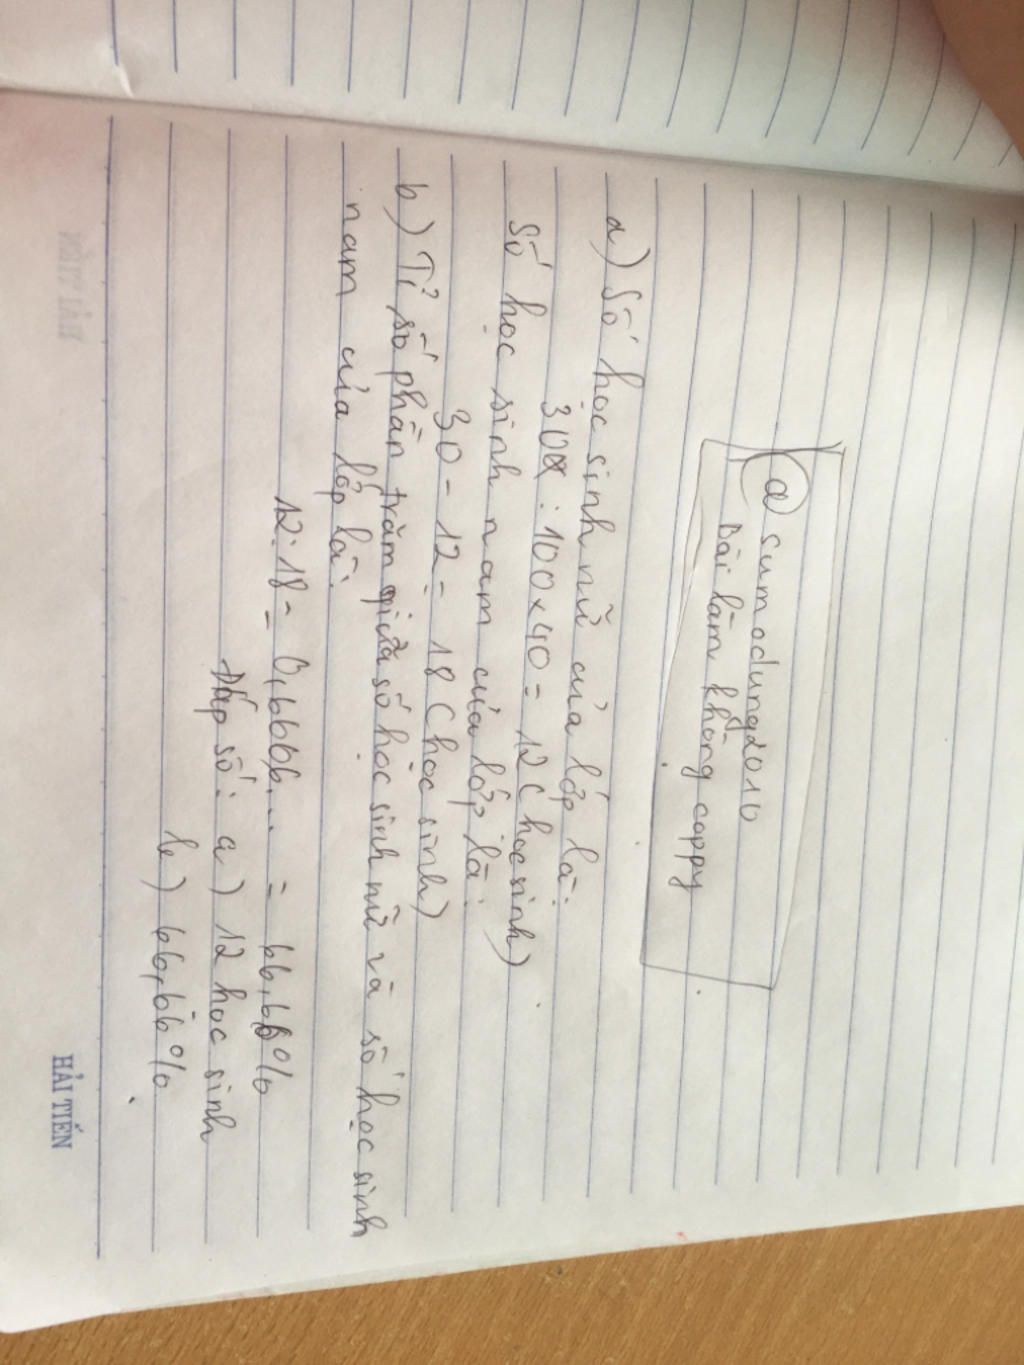 @sumodung2010
Bài làm không coppy
a) Số học sinh nữ của lớp là:
30 : 100 x 40 = 12 ( học sinh)
Số học sinh nam của lớp là:
30 - 12 = 18 ( học sinh)
b) Tỉ số phần trăm giữa số học sinh nữ và số học sinh
nam của lớp là:
12:18 = 0,6666... = 66,66%
Đáp số: a) 12 học sinh
b) 66,66%
HẢI TIẾN